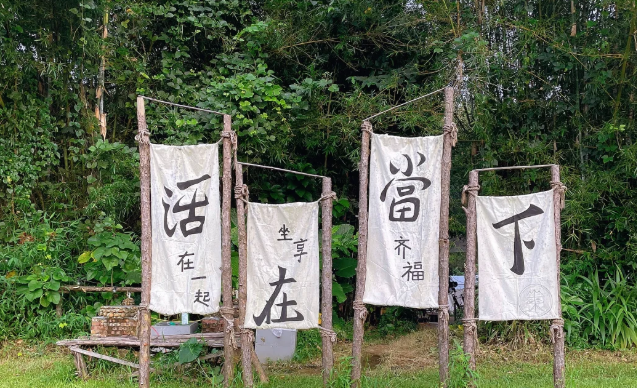 活
在一起
坐享
在
當
齐福
下